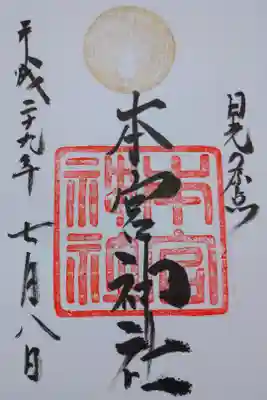 日光の原点
本宮神社
本宮神社
平成二十九年
七月八日